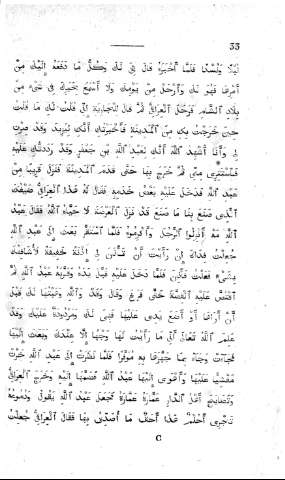 33
لَيْلًا وَلَسْنَا فَلَمَّا أَخْبَرَهُ قَالَ لِي لَكَ وَكُلُّ مَا دَفَعَهُ إِلَيْكَ مِنْ
أَمْرِهَا فَهْوَ لَكَ وَأَرْحَلْ مِنْ يَوْمِكَ وَلَا أَسْمَعْ بِخَبَرِكَ فِي شَيْءٍ مِنْ
بِلَادِ الشَّامِ فَرَحَلَ الْعِرَاقِيُّ ثُمَّ قَالَ لِلْجَارِيَةِ إِنِّي قُلْتُ لَكِ مَا قُلْتُ
حِينَ خَرَجْتُ بِكِ مِنَ الْمَدِينَةِ فَأَخْبَرْتُكِ أَنَّكِ لِيَزِيدَ وَقَدْ صِرْتِ
لِي وَأَنَا أُشْهِدُ اللّٰهَ أَنَّكِ لِعَبْدِ اللّٰهِ بْنِ جَعْفَرٍ وَقَدْ رَدَدْتُكِ عَلَيْهِ
فَاسْتَتِرِي مِنِّي ثُمَّ خَرَجَ بِهَا حَتَّى قَدِمَ الْمَدِينَةَ فَنَزَلَ قَرِيبًا مِنْ
عَبْدِ اللّٰهِ فَدَخَلَ عَلَيْهِ بَعْضُ خَدَمِهِ فَقَالَ لَهُ هٰذَا الْعِرَاقِيُّ ضَيْفُكَ
الَّذِي صَنَعَ بِنَا مَا صَنَعَ قَدْ نَزَلَ الْعَرْصَةَ لَا حَيَّاهُ اللّٰهُ فَقَالَ عَبْدُ
اللّٰهِ مَهْ أَنْزِلُوا الرَّجُلَ وَأَكْرِمُوهُ فَلَمَّا اسْتَقَرَّ بَعَثَ إِلَى عَبْدِ اللّٰهِ
جُعِلْتُ فِدَاكَ إِنْ رَأَيْتَ أَنْ تَأْذَنَ لِي إِذْنَةً خَفِيفَةً لِأُشَافِهَكَ
بِشَيْءٍ فَعَلْتَ فَأَذِنَ فَلَمَّا دَخَلَ عَلَيْهِ قَبَّلَ يَدَهُ وَقَرَّبَهُ عَبْدُ اللّٰهِ ثُمَّ
اقْتَصَّ عَلَيْهِ الْقِصَّةَ حَتَّى فَرَغَ وَقَالَ وَقَدْ وَاللّٰهِ وَهَبْتُهَا لَكَ قَبْلَ
أَنْ أَرَاهَا أَوْ أَضَعَ يَدِي عَلَيْهَا فَهْيَ لَكَ وَمَرْدُودَةٌ عَلَيْكَ وَقَدْ
عَلِمَ اللّٰهُ تَعَالَى أَنِّي مَا رَأَيْتُ لَهَا وَجْهًا إِلَّا عِنْدَكَ وَبَعَثَ إِلَيْهَا
فَجَاءَتْ وَجَاءَ بِمَا جَهَّزَهَا بِهِ مُوَفَّرًا فَلَمَّا نَظَرَتْ إِلَى عَبْدِ اللّٰهِ خَرَّتْ
مَغْشِيًّا عَلَيْهَا وَأَهْوَى إِلَيْهَا عَبْدُ اللّٰهِ فَضَمَّهَا إِلَيْهِ وَخَرَجَ الْعِرَاقِيُّ
وَتَصَايَحَ أَهْلُ الدَّارِ عِمَارَةُ عِمَارَةُ فَجَعَلَ عَبْدُ اللّٰهِ يَقُولُ وَدُمُوعُهُ
تَجْرِي أَحُلْمٌ هٰذَا أَحَقٌّ مَا أُصَدِّقُ بِهَا فَقَالَ الْعِرَاقِيُّ جُعِلْتُ
C